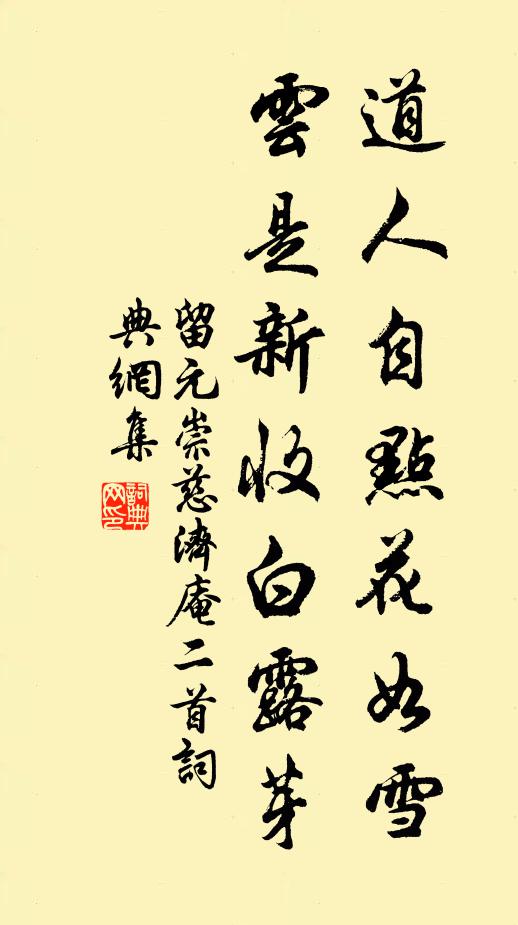 道人自點花如雪
雲是新收白露芽
留元崇慈濟庵二首詞
典網集
詞典
网印